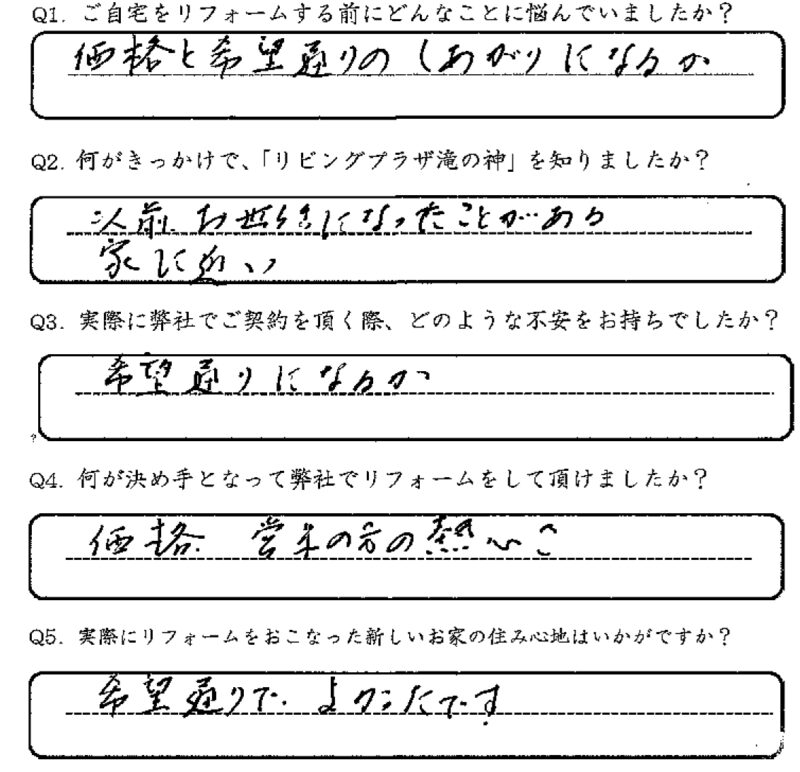 Q1. ご自宅をリフォームする前にどんなことに悩んでいましたか？
価格と希望通りのしあがりになるか
Q2. 何がきっかけで、「リビングプラザ滝の神」を知りましたか？
以前、お世話になったことがある
家に近い
Q3. 実際に弊社でご契約を頂く際、どのような不安をお持ちでしたか？
希望通りになるか
?
Q4. 何が決め手となって弊社でリフォームをして頂けましたか？
価格. 営業の方の熱心さ
Q5. 実際にリフォームをおこなった新しいお家の住み心地はいかがですか？
希望通りで. よかったです